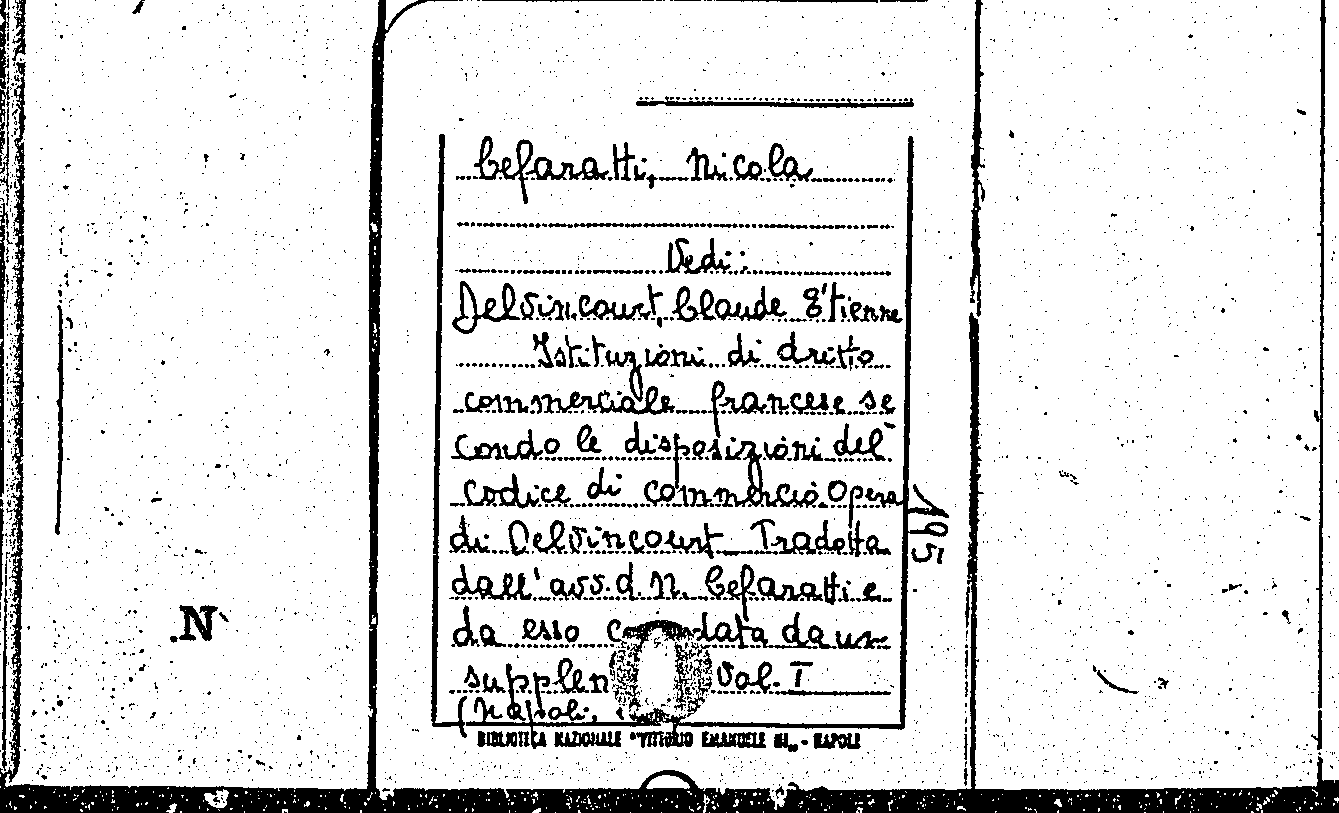 Cefaratti, Nicola
Vedi:
Delvincourt, Claude E'tienne
Istituzioni di dritto
commerciale francese se
condo le disposizioni del
codice di commercio. Opera
di Delvincourt Tradotta
dall' avv. d. N. Cefaratti e
da esso data da un
Vol. I
(Napoli,
195
.N
BIBLIOTECA NAZIONALE "VITTORIO EMANUELE III" - NAPOLI